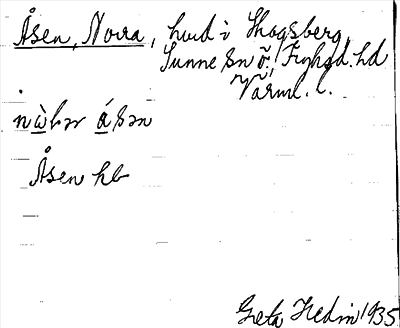 Åsen, Norra, hmd i Skogsberg,
Sunne sn ö. Fryksd. hd
Värml. l.
Åsen hb
Greta Hedin 1935